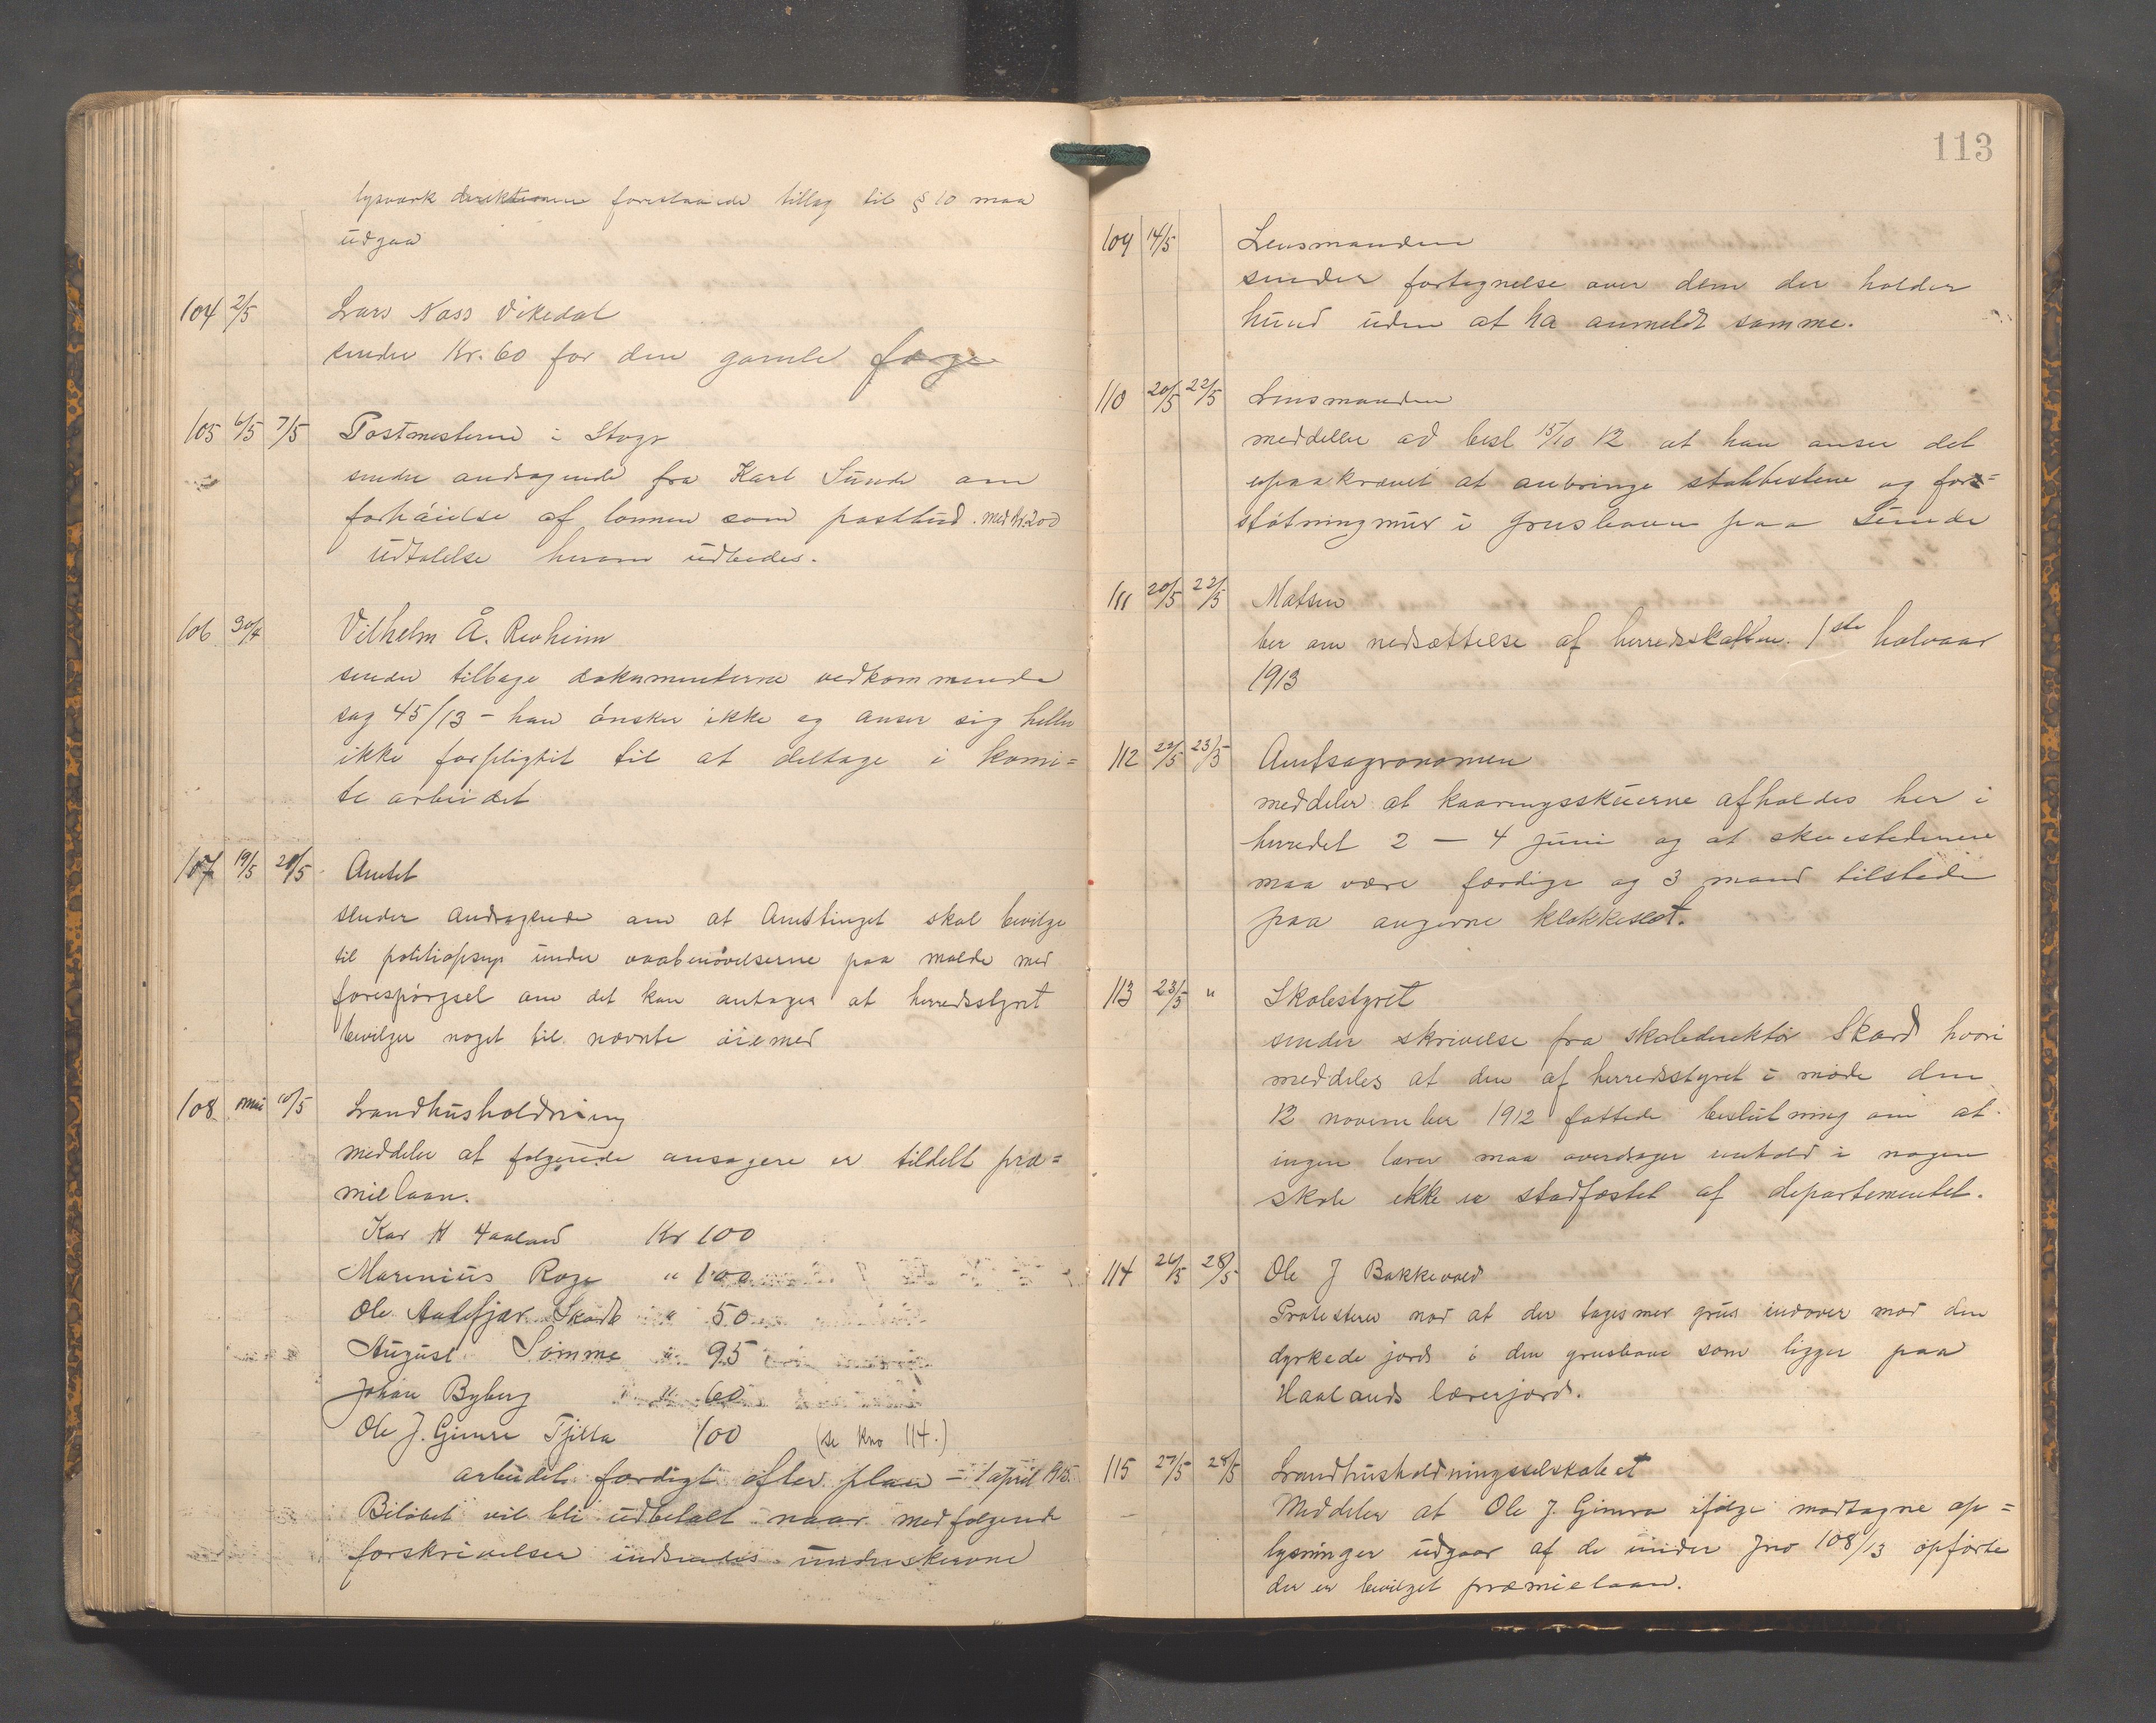 lysværk direktionen foreslaaede tillæg til § 10 maa
udgaa
104 2/5 Lars Næss Vikedal
sender Kr. 60 for den gamle færge
105 6/5 7/5 Postmesteren i Stavgr
sender andragende fra Karl Sunde om
forhöielse af lönnen som postbud. med Kr. 200
Udtalelse herom udbedes.
106 30/4 Vilhelm Å. Revheim
sender tilbage dokumenterne vedkommende
sag 45/13 - han önsker ikke og anser sig heller
ikke forpligtet til at deltage i komi=
te arbeidet
107 19/5 20/5 Amtet
sender andragende om at Amtstinget skal bevilge
til politiopsyn under vaabenövelserne paa malde med
forespörgsel om det kan antages at herredsstyret
bevilger noget til nævnte öiemed
108 mai 10/5 Landhusholdning
meddeler at følgende ansøgere er tildelt præ=
mielaan.
Kar H Haaland Kr 100
Marenius Roge " 100
Ole Aadefjær Skade " 50
August Sömme " 95
Johan Byberg " 60
Ole J. Gimre Tjelta 100 (se kno 114.)
arbeidet færdigt efter plan - 1 april 1915.
Belöbet vil bli udbetalt naar medfølgende
forskrivelser indsendes underskrevne
113
109 14/5 Lensmanden
sender fortegnelse over dem der holder
hund uden at ha anmeldt samme.
110 20/5 22/5 Lensmanden
meddeler ad besl 15/10 12 at han anser det
upaakrævet at anbringe stabbestene og for=
stötningmur i grushaven paa Sunde
111 20/5 22/5 Matsen
ber om nedsættelse af herredsskatten 1ste halvaar
1913
112 22/5 23/5 Amtsagronomen
meddeler at kaaringsskuerne afholdes her i
herredet 2 - 4 juni og at skuestederne
maa være færdige og 3 mand tilstede
paa angivne klokkeslet.
113 23/5 " Skolestyret
sender skrivelse fra skoledirektör Skard hvori
meddeles at den af herredsstyret i møde den
12 november 1912 fattede beslutning om at
ingen lærer maa overdrages innhold i nogen
skole ikke er stadfæstet af departementet.
114 26/5 28/5 Ole J Bakkevold
Protesterer mod at der tages mer grus indover mod den
dyrkede jord i den grushave som ligger paa
Haalands lærerjord.
115 27/5 28/5 Landhusholdningsselskabet
Meddeler at Ole J. Gimra ifølge modtagne op=
lysninger udgaar af de under Jno 108/13 opförte
der er bevilget præmielaan.